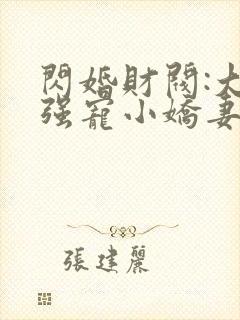 閃婚財閥:大
强寵小嬌妻
張建麗